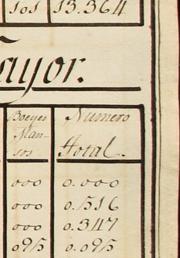 101 13.364
ayor.
Bueyes Numero
Man-
sos Total.
000 0.000
000 0.516
000 0.347
095 0.095